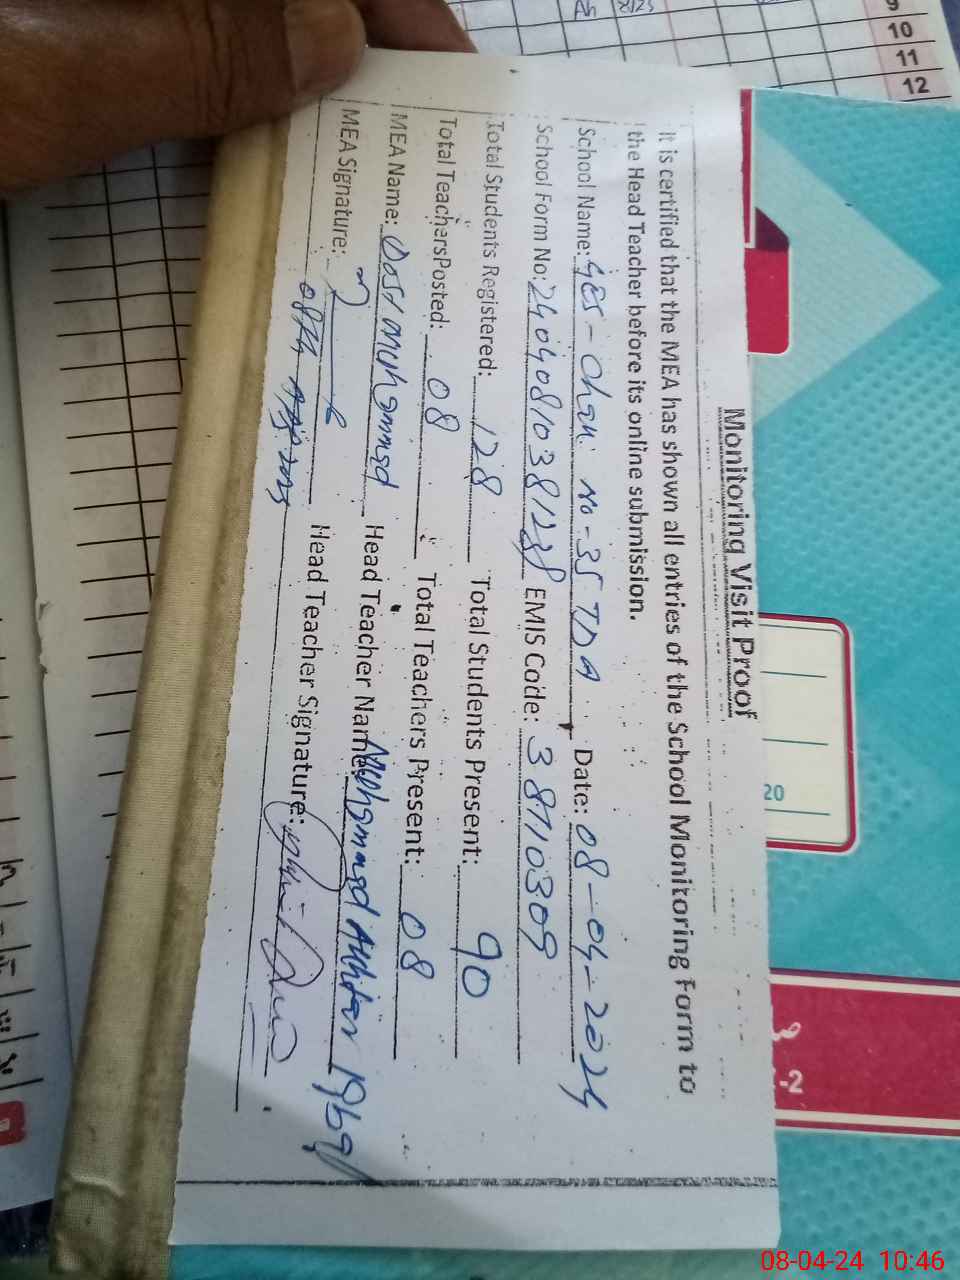 Monitoring Visit Proof
It is certified that the MEA has shown all entries of the School Monitoring Form to
the Head Teacher before its online submission.
School Name: GES - Chak No-35 TDA Date: 08-04-2024
School Form No: 240408103812 EMIS Code: 38710309
Total Students Registered: 128 Total Students Present: 90
Total Teachers Posted: 08 Total Teachers Present: 08
MEA Name: Dost Muhammad Head Teacher Name: Muhammad Akhtar Iqbal
MEA Signature: Head Teacher Signature:
9
10
11
12
20
-2
08-04-24 10:46